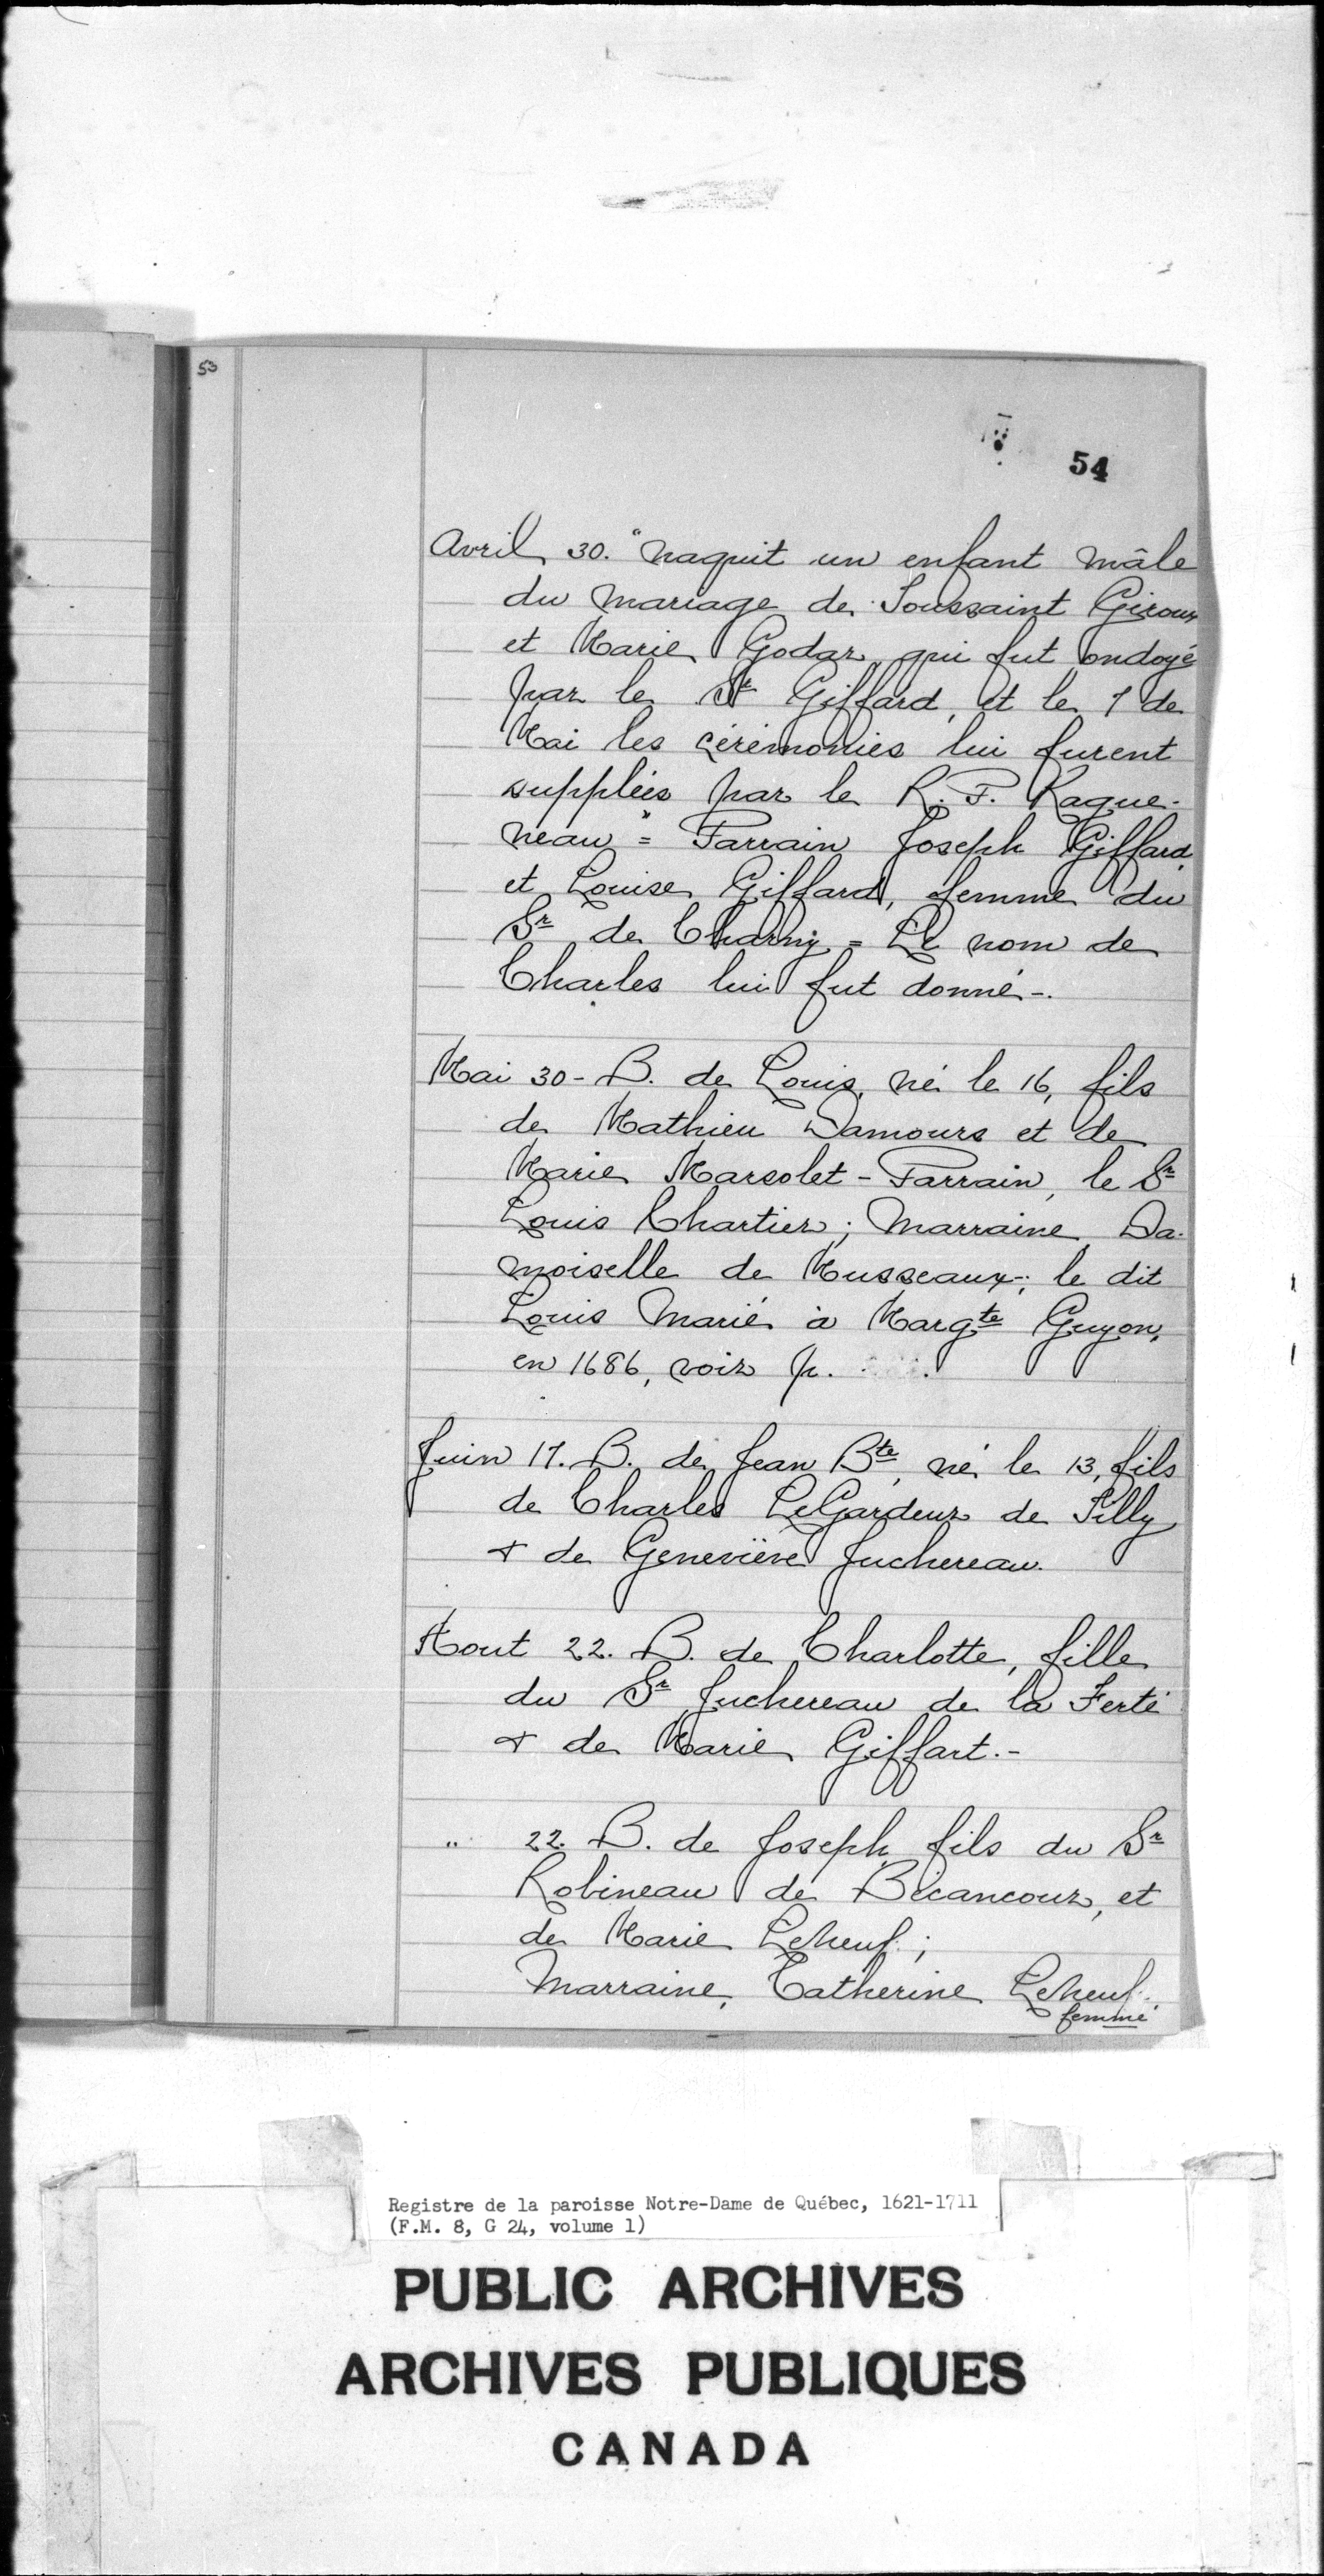 53
54
Avril 30. "naquit un enfant mâle
du mariage de Toussaint Giroux
et Marie Godar qui fut ondoyé
par le Sr Giffard, et le 7 de
Mai les cérémonies lui furent
supplées par le R. P. Rague-
neau" = Parrain Joseph Giffard
et Louise Giffard, femme du
Sr de Charny = Le nom de
Charles lui fut donné -.
Mai 30 - B. de Louis, né le 16, fils
de Mathieu Damours et de
Marie Marsolet - Parrain, le Sr
Louis Chartier; Marraine, Da-
moiselle de Musseaux; le dit
Louis marié à Margte Guyon,
en 1686, voir p. .
Juin 17. B. de Jean Bte, né le 13, fils
de Charles LeGardeur de Tilly
& de Geneviève Juchereau.
Aout 22. B. de Charlotte, fille
du Sr Juchereau de la Ferté
& de Marie Giffart. -
" 22. B. de Joseph fils du Sr
Robineau de Bécancour, et
de Marie LeNeuf;
Marraine, Catherine LeNeuf.
femme
Registre de la paroisse Notre-Dame de Québec, 1621-1711
(F.M. 8, G 24, volume 1)
PUBLIC ARCHIVES
ARCHIVES PUBLIQUES
CANADA